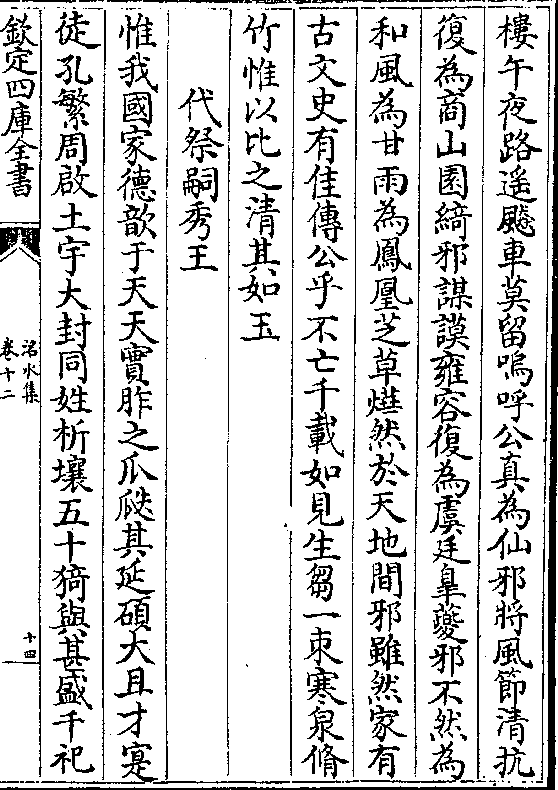 樓午夜路遥飈車莫留嗚呼公真為仙邪將風節清抗
復為商山園綺邪謀謨雍容復為虞廷臯夔邪不然為
和風為甘雨為鳳凰芝草爗然於天地間邪雖然家有
古文史有佳傳公乎不亡千載如見生芻一束寒泉脩
竹惟以比之清其如玉
代祭嗣秀王
惟我國家德歆于天天實胙之瓜瓞其延碩大且才寔
徒孔繁周啟土宇大封同姓析壤五十猗與甚盛千祀
欽定四庫全書
洺水集
卷十二
十四